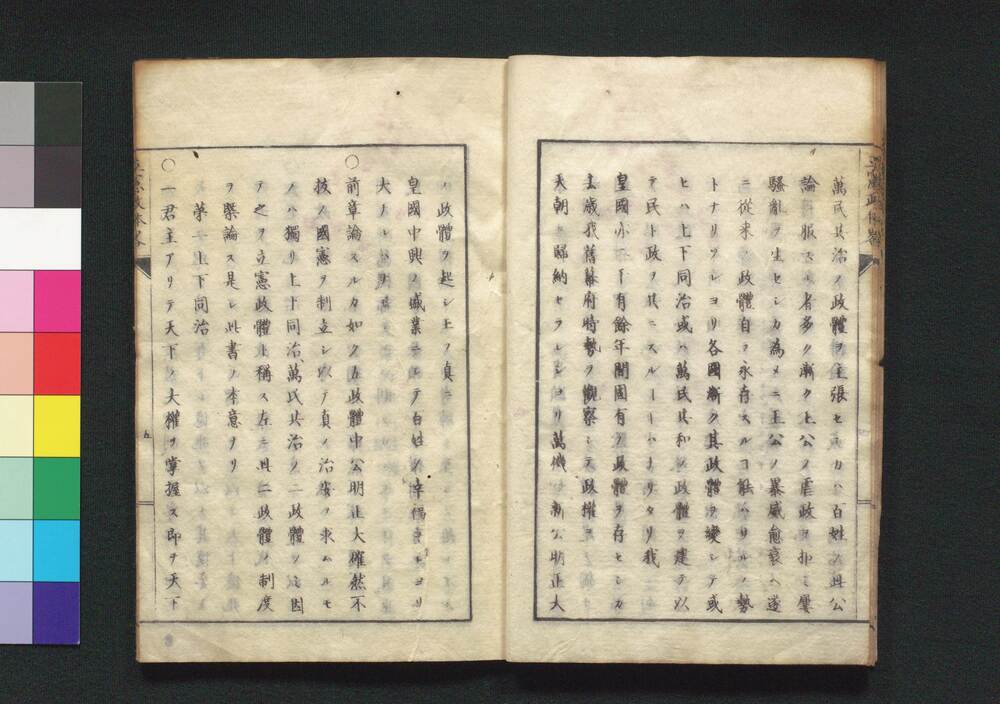 萬民共治ノ政體ヲ主張セシカハ百姓ノ此公
論ニ服スル者多ク漸ク王公ノ虐政ヲ拒ミ屢
騷亂ヲ生セシカ為メニ王公ノ暴威愈衰ヘ遂
ニ從來ノ政體自ラ永存スルコ能ハサルノ勢
トナリソレヨリ各國漸ク其政體ヲ變シテ或
ヒハ上下同治或ハ萬民共和ノ政體ヲ建テ以
テ民ト政ヲ共ニスルーーハナリタリ我
皇國亦二千有餘年間固有ノ政體ヲ存セシカ
去歲我舊幕府時勢ヲ觀察シテ政權ヲ
天朝ニ歸納セラレシヨリ萬機一新公明正大
ノ政體ヲ起シ上ノ真
皇國中興ノ盛業ニシテ百姓ノ幸福是レヨリ
大ナルハナシ
○前章論スルカ如ク五政體中公明正大確然不
拔ノ國憲ヲ制立シ以テ真ノ治安ヲ求ムルモ
ノハ獨リ上下同治、萬民共治ノ二政體ノミ因
テ之ヲ立憲政體ト稱ス左ニ此二政體ノ制度
ヲ槩論ス是レ此書ノ本意ナリ
第一上下同治
○一君主アリテ天下ノ大權ヲ掌握ス即ヲ天下
五